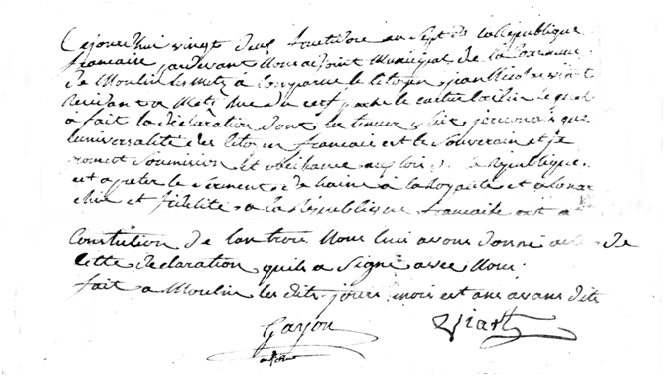 Cejourd'hui vingt deux fructidore an Sept de la République
francaise pardevant Nous adjoint Municipal de la Commune
de Moulin les Metz à comparue le Citoyen jean Nicolas viart
Residant a Metz Rue du cerf le quel
à fait la déclaration dont la teneur suit je reconnais que
luniversalité des Citoyen francais est le Souverain et je
promet Soumission Et obeissance aux lois de la République.
est a preter le Serment de haine à la Royauté et alanar
chie et fidélité a la République francaise est a la
Constitution de lan trois Nous lui avons donné acte de
cette declaration quils a Signé avec Nous.
fait a Moulin les dits jours mois est ans avans dits
Gayon Viart